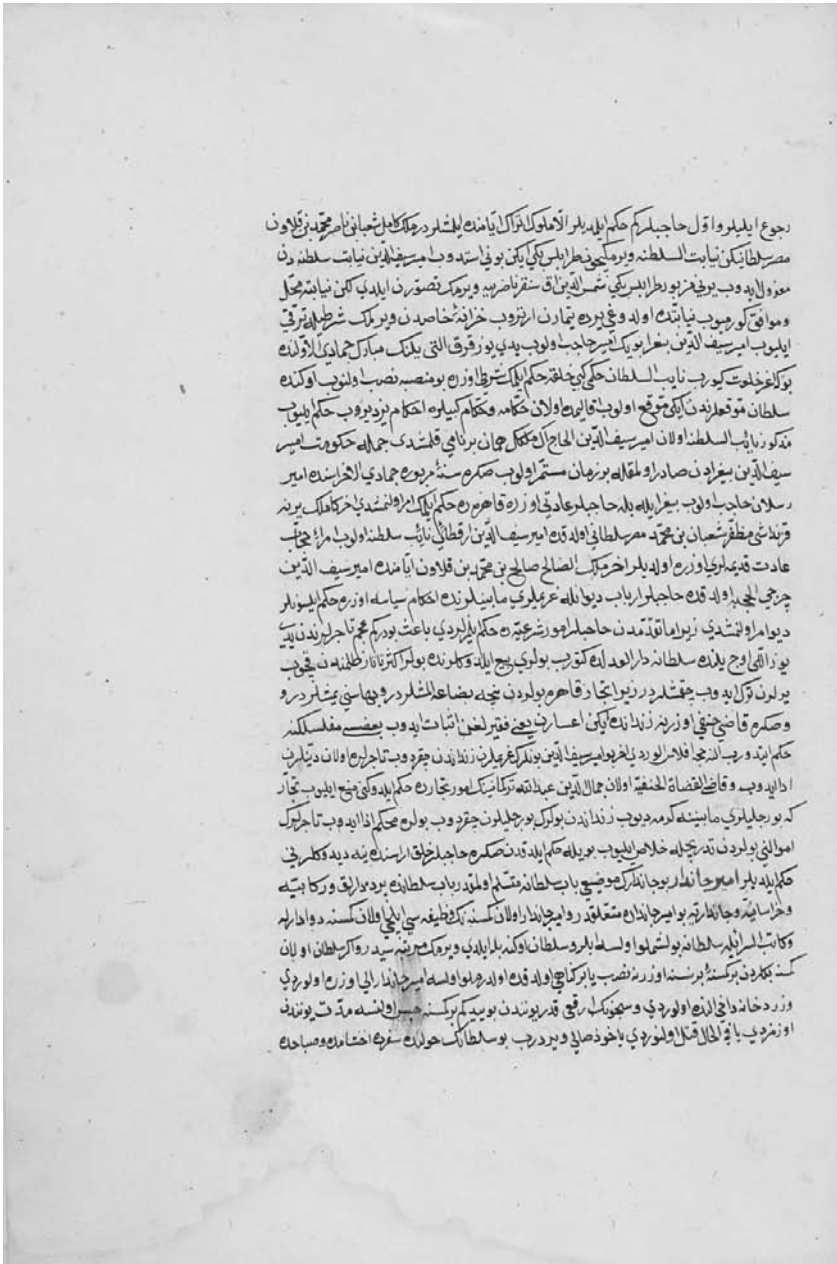 رجوع ايليلر و اوّل حاجبلر كم حكم ايلديلر الّا ملوك اتراك ايّامنده ايلمشلردر ملك كامل شعبان بن ناصر محمّد بن قلاون
مصر سلطانيكن نيابت السلطنه ويرمكيچون طرابلس بكي ايكن بوني استدوب امير سيف الدّين نيابت سلطنه دن
معزول ايدوب يرني طرابلس بكي شمس الدّين اق سنقر ناصريه ويرمك تصوّرن ايلدي لكن نيابته محلّ
و موافق كورميوب نيابتده اولدوغي يرده تيمارن ارتروب خزانهٔ خاصدن ويرملك شرطيله ترقّي
ايليوب امير سيف الدّين بيغرا بويك امير حاجب اولوب يدي يوز قرق التى يلنك مبارك جمادي الاولنده
بوكا خلعت كيورب نايب السلطان حكمي كبي خلقه حكم ايلمك شرطى اوزره بو منصبه نصب اولنوب اوكنده
سلطان موقعلرندن ايكى موقع اولوب اقاليمده اولان حكّامه احكام يزديروب حكم ايليوب
مذكور نائب السلطنه اولان امير سيف الدّين الحاج ال ملك قلمشدى جمله حكومت امير
سيف الدّين بيغرادن صادر اولمقله بو زمان مستمر اولوب صكره سنهٔ مزبوره جمادي الاخرسنده امير
رسلان حاجب اولوب بيغرا ايله بله حاجبلر عادتى اوزره قاهره ده حكم ايلمك امر اولنمشدي اخر كامل ملك يرينه
قرنداشى مظفّر شعبان بن محمّد مصر سلطانى اولدقده امير سيف الدّين ارقطائي نائب سلطنه اولوب امراء حجّاب
عادت قديمه لري اوزره اولديلر اخر ملك الصالح صالح بن محمّد بن قلاون ايّامنده امير سيف الدّين
جرجي الحجابه اولدقده حاجبلر ارباب ديوانله غريملري مابينلرنده احكام سياسه اوزره حكم ايلسونلر
ديو امر اولنمشدي زيرا ما تقدّمدن حاجبلر امور شرعيّه ده حكم ايلمزلردي باعث بودر كم عجم تاجرلرندن يدي
يوز اللى اوج يلنده سلطانه دار العدلده كتورب بولري بيع ايلدوكلرنده بولر اكثر تاتار ظلمندن قچوب
يرلرن ترك ايدوب چقمشلردر زيرا تجّار قاهره بولردن نيجه بضاعه المشلردر و بهاسنى يمشلردر و
و صكره قاضي حنفي اوزرينه زندانده ايكن اعسارن يعني فقيرلغن اثبات ايدوب بعضسي مفلسلكنه
حكم ايتدورب اخر بو امير سيف الدّين بونلرك غريملرن زنداندن چقردوب تاجرلره اولان دينلرن
ادا ايدوب و قاضي القضاة الحنفيّه اولان جمال الدّين عبد اللّه تركمانينك امور تجّارده حكم ايلدوكنى منع ايليوب تجّار
كه بورجليلري مابيننه كرمه ديوب زنداندن بولرك بورجليلرن چقردوب بولره محكم اذا ايدوب تاجرلرك
اموالنى بولردن تدريجله خلاص ايليوب بويله حكم ايلدقدن صكره حاجبلر خلق اراسنده ينه ديدوكلرني
حكم ايلديلر امير جاندار بو جاندارك موضعي باب سلطانه متسلّم اولمقدر باب سلطانده برد داريه و ركابيّه
و خراسانيّه و جانداريّه بو امير جانداره متعلّقدر و امير جاندار اولان كسنه نك وظيفه سي ايلچي اولان كسنه دوادار ايله
و كاتب السر ايله سلطانه بولشملو اولسه ايلرو سلطان اوكنه بله ايلدي ويرمك سيدر و اكر سلطان اولان
كسنه بكلردن بر كسنه يي برنسنه اوزرينه نصب يا بر كناهي اولدقده اولدرملو اولسه امير جاندار الى اوزره اولوردي
و زردخانه داخي النده اولوردي و سجنك ارفعي قدر يونندن بويديكم بر كسنه حبس اولنسه مدّت يونندن
اوزنمزدي يا في الحال قتل اولنوردي ياخوذ صالي ويردرب بو سلطانك حولنده سفرده اخشامده و صباحده